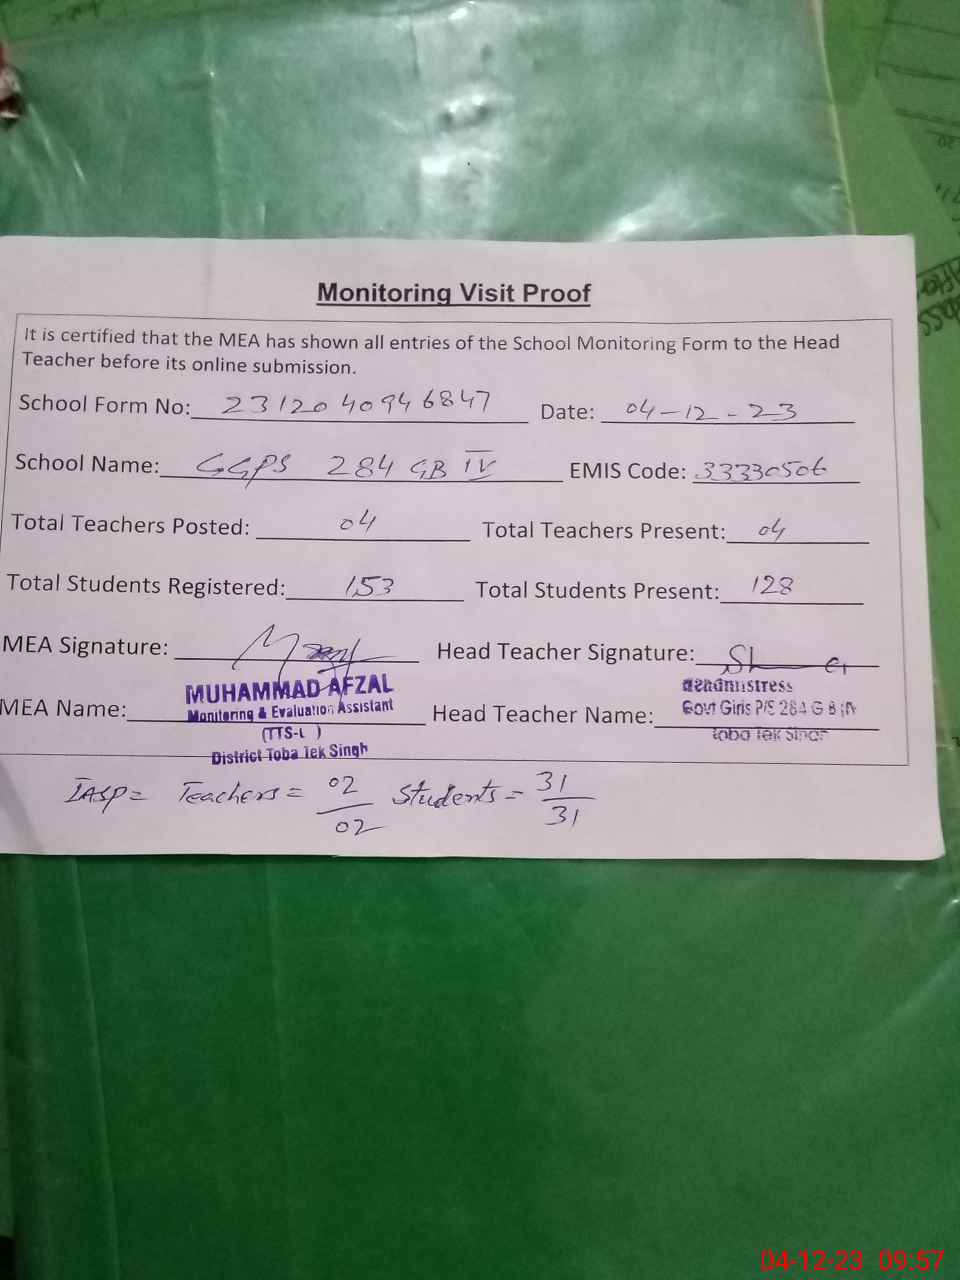 Monitoring Visit Proof
It is certified that the MEA has shown all entries of the School Monitoring Form to the Head
Teacher before its online submission.
School Form No: 2312040946847 Date: 04-12-23
School Name: GGPS 284 GB IV EMIS Code: 33330506
Total Teachers Posted: 04 Total Teachers Present: 04
Total Students Registered: 153 Total Students Present: 128
MEA Signature: Head Teacher Signature:
MEA Name: MUHAMMAD AFZAL Head Teacher Name:
Monitoring & Evaluation Assistant
District Toba Tek Singh
Govt Girls P/S 284 G B
Toba Tek Singh
IASP= Teachers = 02/02 Students = 31/31
04-12-23 09:57